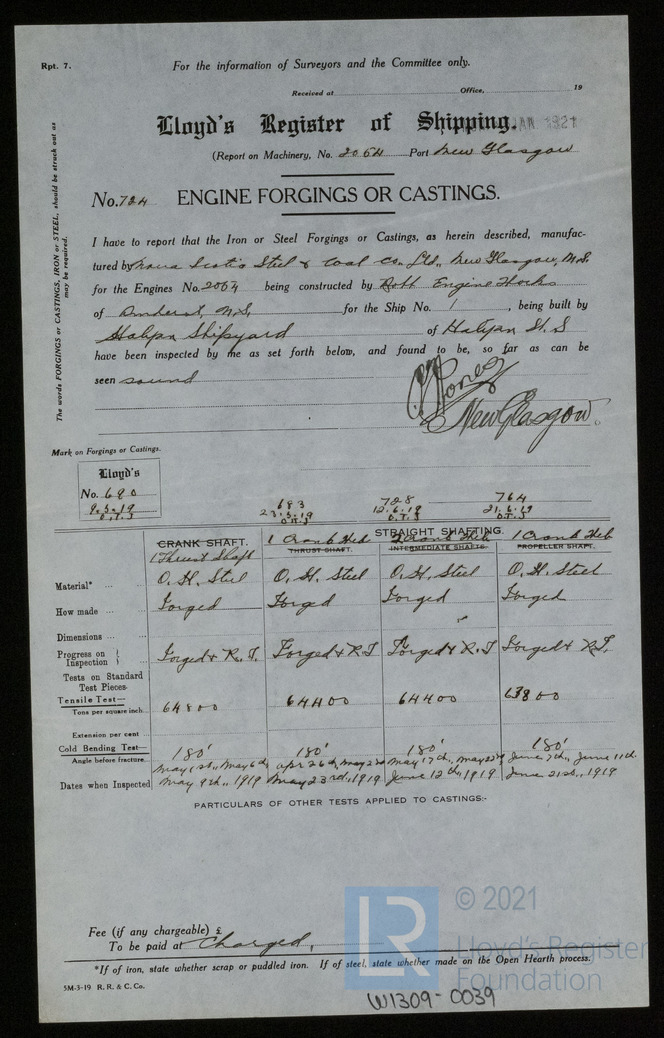 Rpt. 7.
For the information of Surveyors and the Committee only.
Received at Office, 19
Lloyd's Register of Shipping.
JAN 1921
(Report on Machinery, No. 2064 Port New Glasgow
No. 724 ENGINE FORGINGS OR CASTINGS.
The words FORGINGS or CASTINGS, IRON or STEEL, should be struck out as
may be required.
I have to report that the Iron or Steel Forgings or Castings, as herein described, manufac-
tured by Nova Scotia Steel & Coal Co. Ltd., New Glasgow, N.S.
for the Engines No. 2064 being constructed by Robb Engine Works
of Amherst, N.S. for the Ship No. 1, being built by
Shipyard of N.S.
have been inspected by me as set forth below, and found to be, so far as can be
seen sound
Jones
New Glasgow.
Mark on Forgings or Castings.
Lloyd's
No. 690
9.5.19
O.T.J
683
23.5.19
O.T.J
728
12.6.19
O.T.J
764
21.6.19
O.T.J
STRAIGHT SHAFTING.
CRANK SHAFT. 1 Crank Web Crank Web 1 Crank Web
1 Thrust Shaft THRUST SHAFT. INTERMEDIATE SHAFTS. PROPELLER SHAFT.
Material* ... O. H. Steel O. H. Steel O. H. Steel O. H. Steel
How made ... Forged Forged Forged Forged
Dimensions ...
Progress on Inspection } ... Forged & R.T. Forged & R.T Forged & R.T Forged & R.T.
Tests on Standard
Test Pieces
Tensile Test— 64800 64400 64400 63800
Tons per square inch
Extension per cent
Cold Bending Test— 180° 180° 180° 180°
Angle before fracture
May 1st, May 6th, Apr 26th, May 2nd May 17th, May 22nd June 7th, June 11th.
Dates when Inspected May 9th, 1919 May 23rd, 1919 June 12th, 1919 June 21st, 1919
PARTICULARS OF OTHER TESTS APPLIED TO CASTINGS:-
Fee (if any chargeable) £
To be paid at Charged,
*If of iron, state whether scrap or puddled iron. If of steel, state whether made on the Open Hearth process.
5M-3-19 R. R. & C. Co.
LR
© 2021
Lloyd's Register
Foundation
W1309-0039